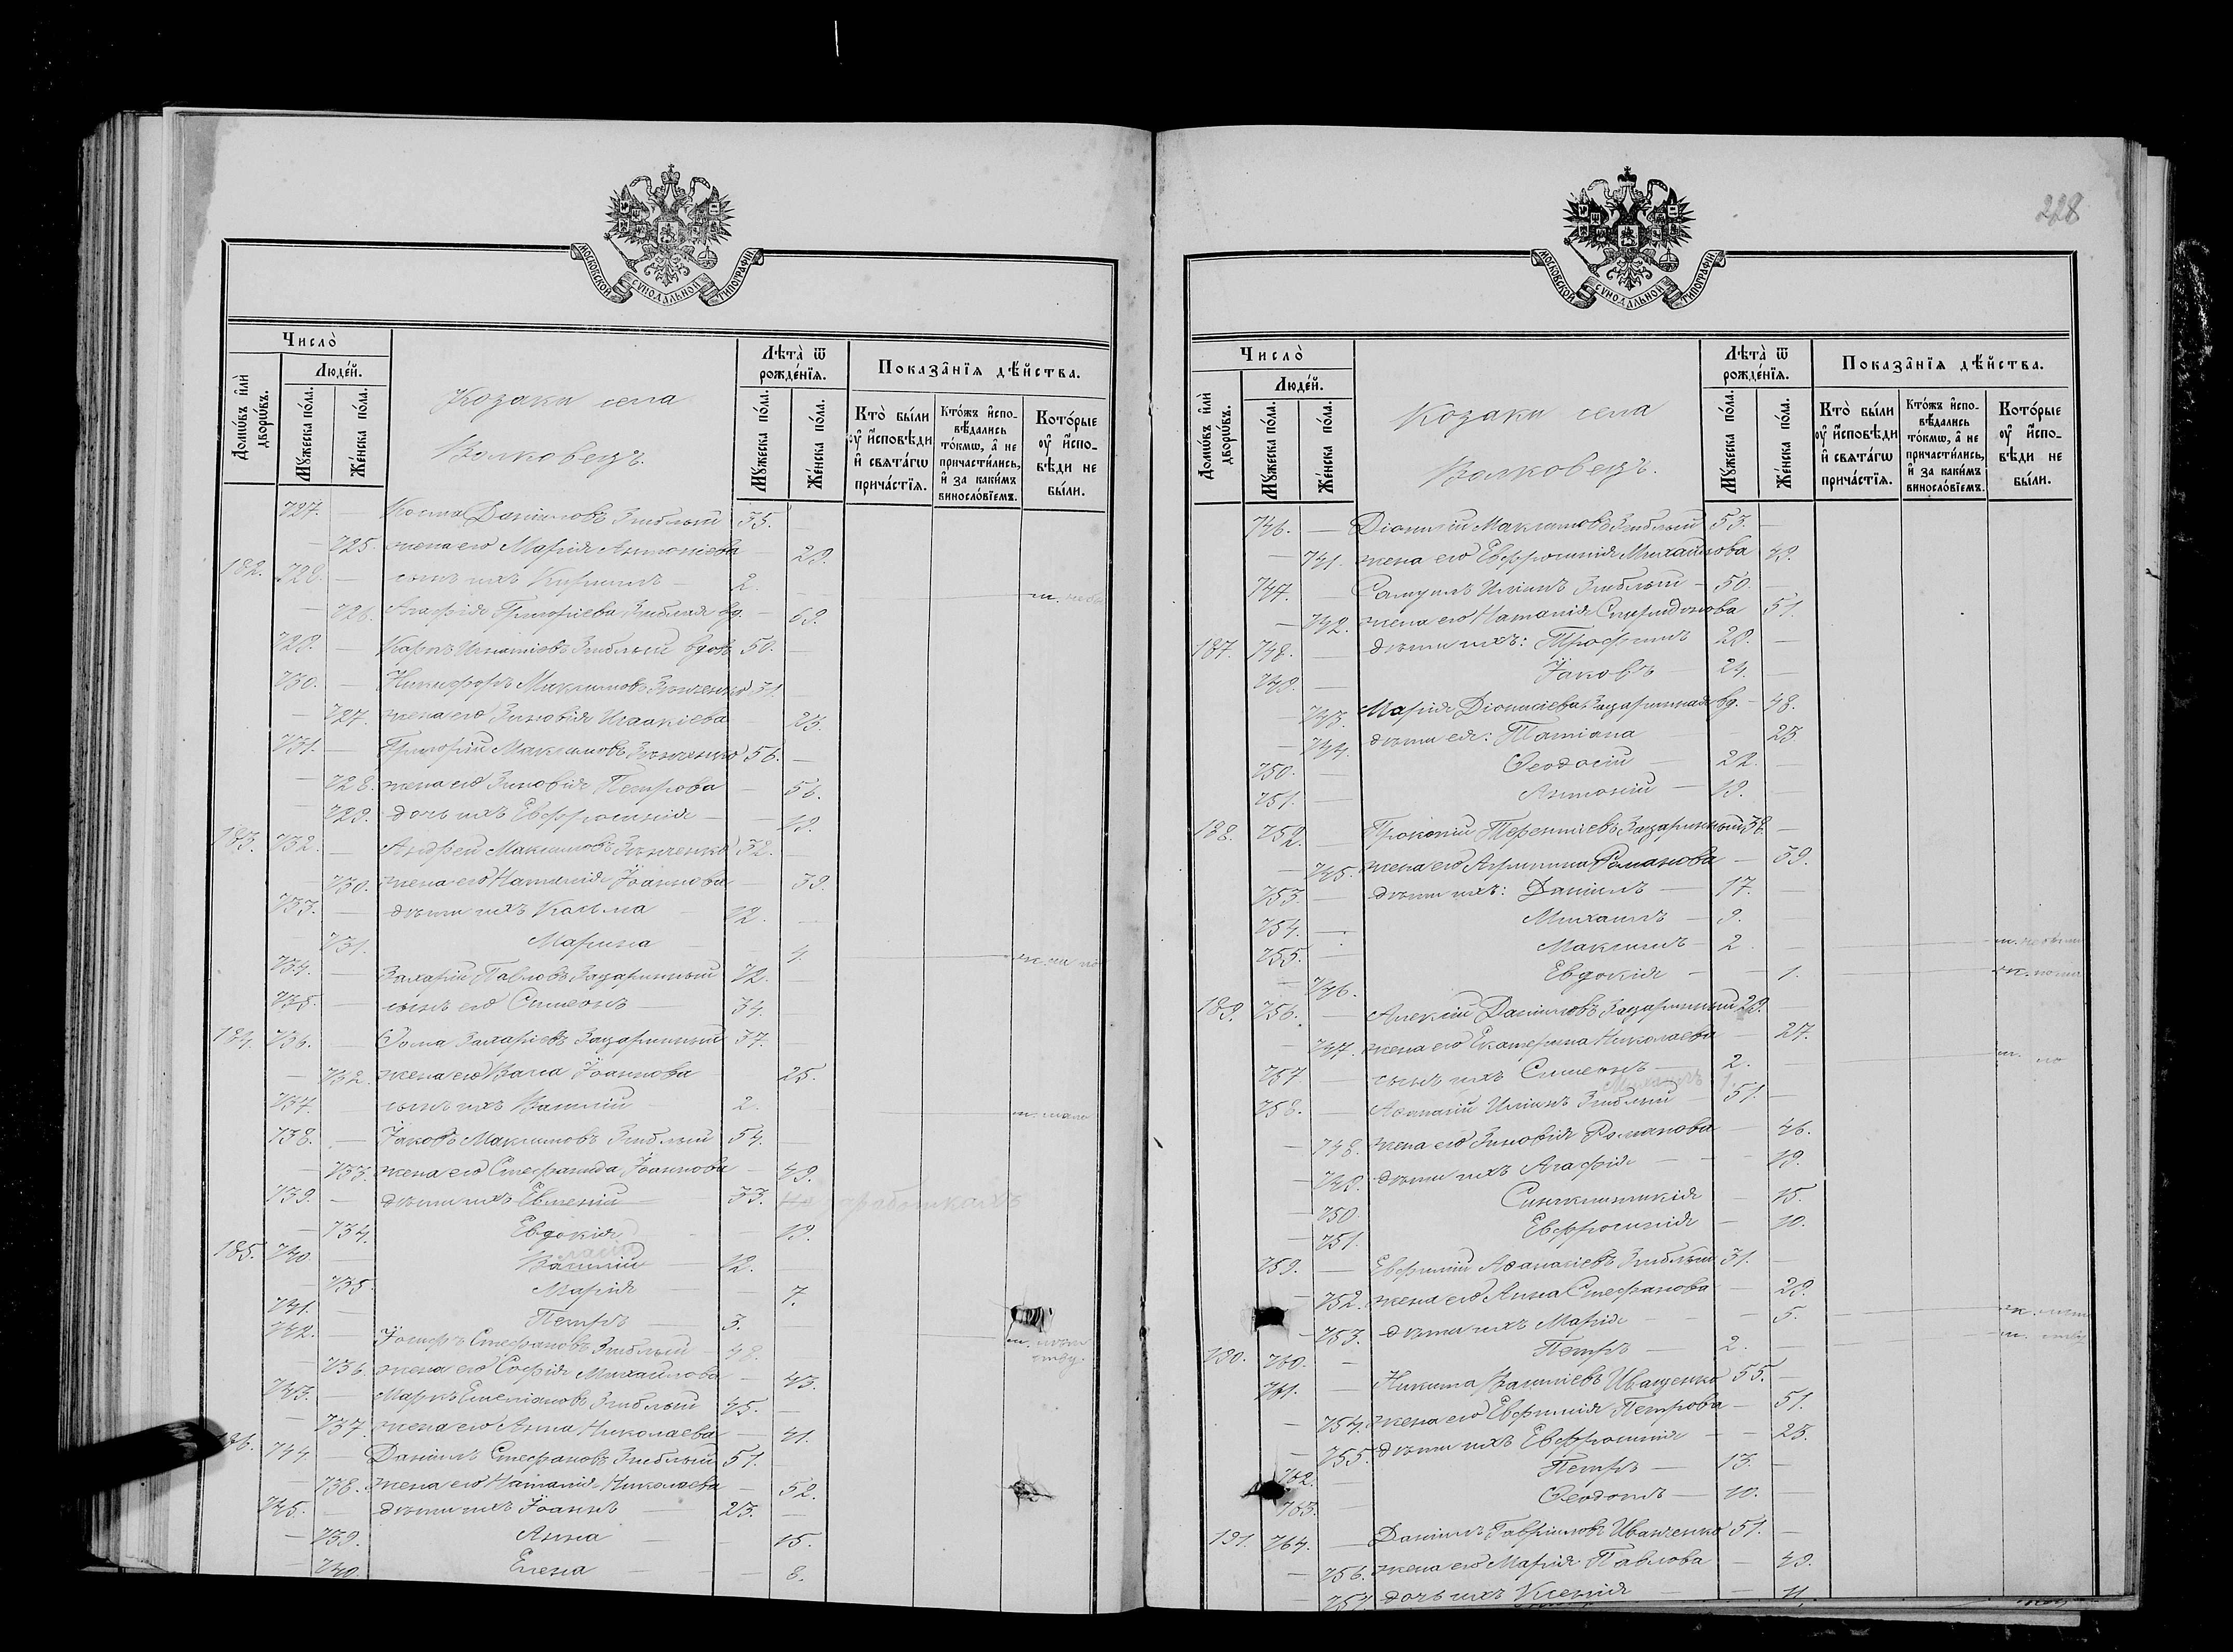 МОСКОВСКОЙ СѴНОДАЛЬНОЙ ТИПОГРАФІИ
Число̀
Люде́й.
Домѡ́въ и҆лѝ дворѡ́въ.
Мꙋ́жеска по́ла.
Же́нска по́ла.
Козаки села
Волковецъ.
Лѣта̀ ѿ рожде́нїѧ.
Мꙋ́жеска по́ла.
Же́нска по́ла.
Показа̑нїѧ дѣ́йства.
Кто̀ бы́ли ᲂу҆ и҆́сповѣди и҆ свѧта́гѡ прича́стїѧ.
Кто́жъ и҆сповѣ́дались то́кмѡ, а҆ не причасти́лись, и҆ за каки́мъ винослѡ́вїемъ.
Кото́рые ᲂу҆ и҆́сповѣди не бы́ли.
727. — Косма Даніиловъ Зиблый 35. —
— 725. жена его Марія Антоніева — 29.
182. 728. — сынъ ихъ Кириллъ — 2.
— 726. Агафія Григоріева Зиблая вд. — 69.
729. — Карпъ Игнатіевъ Зиблый вдов. 50. —
730. — Никифоръ Максимовъ Зѣнченко 31.
— 727. жена его Зиновія Исаакіева 25.
731. — Григорій Максимовъ Зѣнченко 56. —
— 728. жена его Зиновія Петрова — 56.
— 729. дочь ихъ Евфросинія — 19.
183. 732. — Андрей Максимовъ Зѣнченко 32. —
— 730. жена его Наталія Іоаннова — 39.
733. — дѣти ихъ Косьма 12. —
— 731. Марина 4.
734. — Захарій Павловъ Зацаринный 72. —
735. — сынъ его Симеонъ — 34. —
184. 736. — Ѳома Захаріевъ Зацаринный 37. —
— 732. жена его Васса Іоаннова 25.
737. — сынъ ихъ Василій 2.
738. — Іаковъ Максимовъ Зиблый 54. —
— 733. жена его Стефанида Іоаннова — 49.
739. — дѣти ихъ Евгеній 33. на заработкахъ
— 734. Евдокія — 19.
185. 740. — Василій — 12. —
— 735. Марія — 7.
741. — Петръ — 3. —
742. — Іосифъ Стефановъ Зиблый — 48. —
— 736. жена его Софія Михайлова — 43.
743. — Маркъ Емеліановъ Зиблый 45. —
— 737. жена его Анна Николаева — 41.
186. 744. — Даніилъ Стефановъ Зиблый 51. —
— 738. жена его Наталія Николаева — 52.
745. — дѣти ихъ Іоаннъ — 23. —
— 739. Анна — 15.
— 740. Елена — 8.
228
МОСКОВСКОЙ СѴНОДАЛЬНОЙ ТИПОГРАФІИ
Число̀
Люде́й.
Домѡ́въ и҆лѝ дворѡ́въ.
Мꙋ́жеска по́ла.
Же́нска по́ла.
Козаки села
Волковецъ.
Лѣта̀ ѿ рожде́нїѧ.
Мꙋ́жеска по́ла.
Же́нска по́ла.
Показа̑нїѧ дѣ́йства.
Кто̀ бы́ли ᲂу҆ и҆́сповѣди и҆ свѧта́гѡ прича́стїѧ.
Кто́жъ и҆сповѣ́дались то́кмѡ, а҆ не причасти́лись, и҆ за каки́мъ винослѡ́вїемъ.
Кото́рые ᲂу҆ и҆́сповѣди не бы́ли.
746. — Діонисій Максимовъ Зиблый 53. —
— 741. жена его Евфросинія Михайлова 49.
747. — Самуилъ Иліинъ Зиблый — 50. —
— 742. жена его Наталія Спиридонова 51.
187. 748. — дѣти ихъ: Трофимъ 28. —
749. — Іаковъ — 24. —
— 743. Марія Діонисіева Зацаринная вд. — 48.
— 744. дѣти ея: Татіана 25
750. — Ѳеодосій — 22. —
751. — Антоній — 19. —
188. 752. — Прокопій Терентіевъ Зацаринный 38. —
— 745. жена его Агрипина Романова — 39.
753. — дѣти ихъ: Даніилъ — 17. —
754. — Михаилъ — 9. —
755. — Максимъ — 2. —
— 746. Евдокія — — 1.
189. 756. — Алексій Даніиловъ Зацаринный 29. —
— 747. жена его Екатерина Николаева — 27.
757. — сынъ ихъ Симеонъ — 2. —
Михаилъ 1.
758. — Аѳанасій Иліинъ Зиблый — 51. —
— 748. жена его Зиновія Романова — 46.
— 749. дѣти ихъ Агафія — — 19.
— 750. Синклитикія — 15.
— 751. Евфросинія — 10.
759. — Евфимій Аѳанасіевъ Зиблый 31. —
— 752. жена его Анна Стефанова — 29.
— 753. дѣти ихъ Марія — — 5.
190. 760. — Петръ — 2. —
761. — Никита Василіевъ Иващенко 55. —
— 754. жена его Евфимія Петрова — 51.
— 755. дѣти ихъ Евфросинія — — 25.
762. — Петръ — 13. —
763. — Ѳеодоръ — 10. —
191. 764. — Даніилъ Гавріиловъ Иванченко 51. —
— 756. жена его Марія Павлова — 49.
— 757. дочь ихъ Ксенія — — 11.